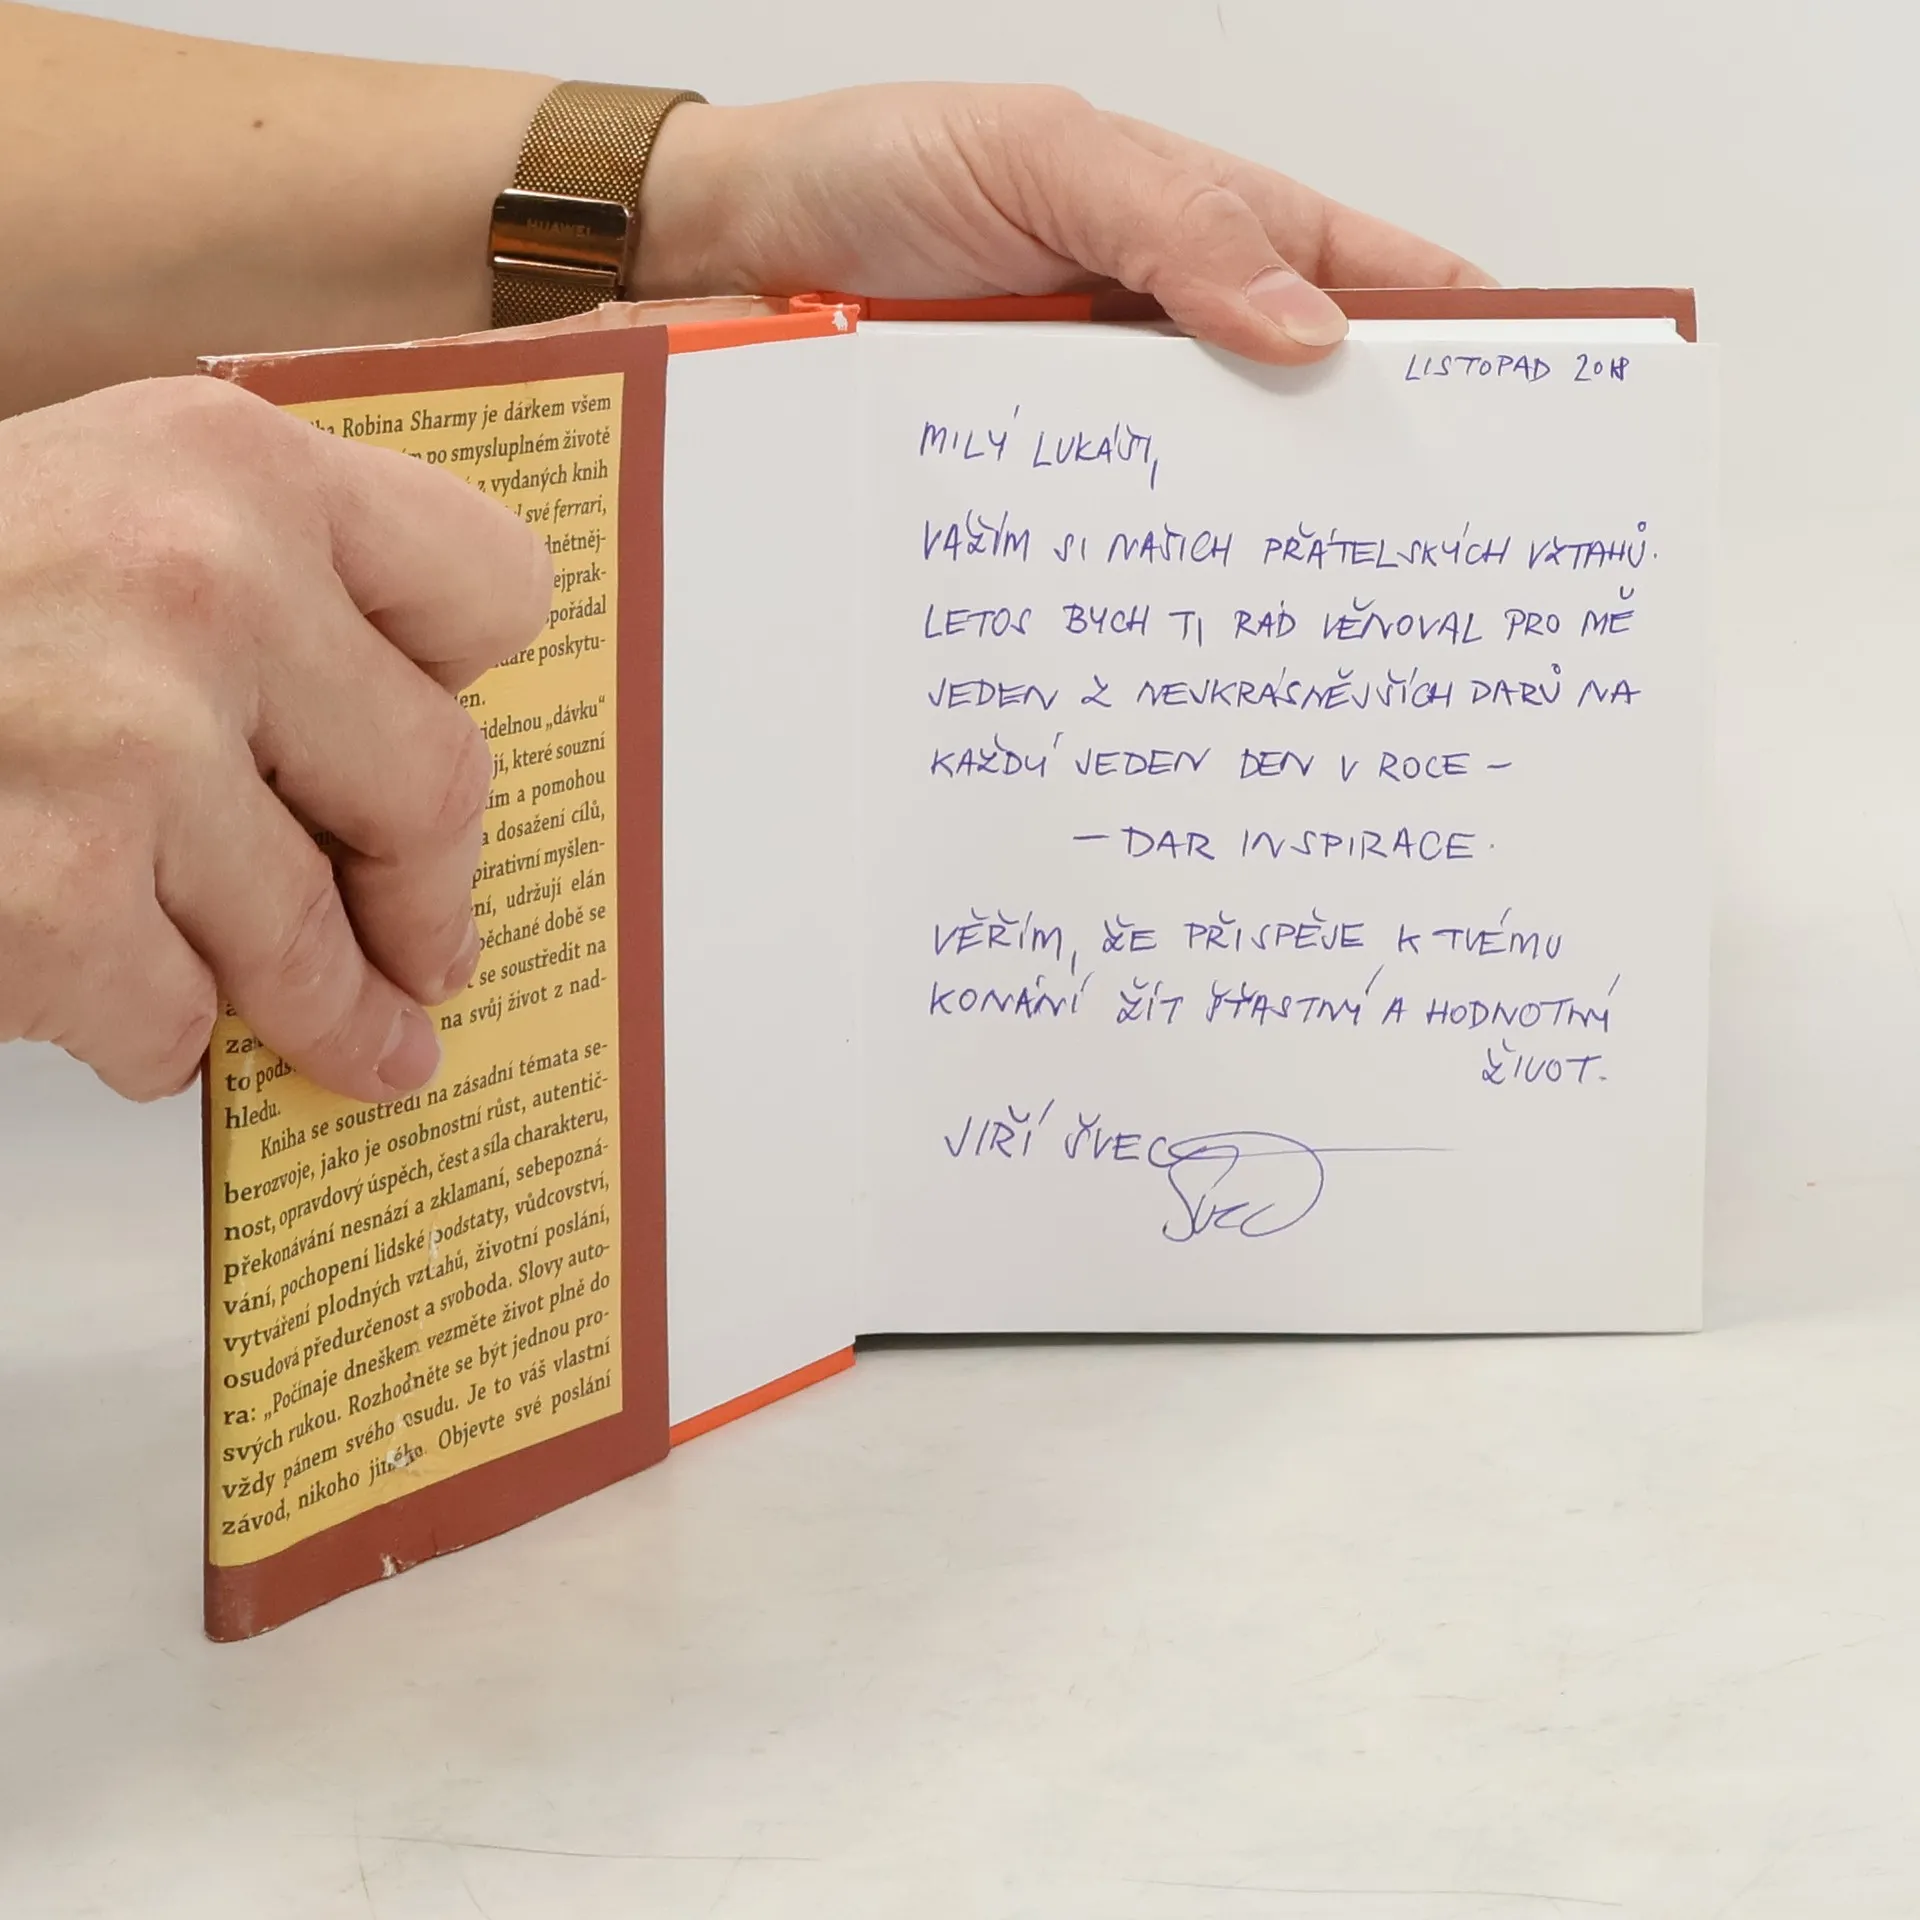 HUAWEI
Robina Sharmy je dárkem všem
po smysluplném životě
z vydaných knih
své ferrari,
dnětněj-
ejprak-
spořádal
poskytu-
en.
idelnou „dávku“
jí, které souzní
ím a pomohou
a dosažení cílů,
pirativní myšlen-
ní, udržují elán
pěchané době se
se soustředit na
na svůj život z nad-
to pods
hledu.
Kniha se soustředí na zásadní témata se-
berozvoje, jako je osobnostní růst, autentič-
nost, opravdový úspěch, čest a síla charakteru,
překonávání nesnází a zklamaní, sebepozná-
vání, pochopení lidské podstaty, vůdcovství,
vytváření plodných vztahů, životní poslání,
osudová předurčenost a svoboda. Slovy auto-
ra: „Počínaje dneškem vezměte život plně do
svých rukou. Rozhodněte se být jednou pro-
vždy pánem svého osudu. Je to váš vlastní
závod, nikoho jiného. Objevte své poslání
LISTOPAD 2018
MILÝ LUKÁŠI,
VÁŽÍM SI NAŠICH PŘÁTELSKÝCH VZTAHŮ.
LETOS BYCH TI RÁD VĚNOVAL PRO MĚ
JEDEN Z NEJKRÁSNĚJŠÍCH DARŮ NA
KAŽDÝ JEDEN DEN V ROCE –
– DAR INSPIRACE.
VĚŘÍM, ŽE PŘISPĚJE K TVÉMU
KONÁNÍ ŽÍT ŠŤASTNÝ A HODNOTNÝ
ŽIVOT.
JIŘÍ ŠVEC